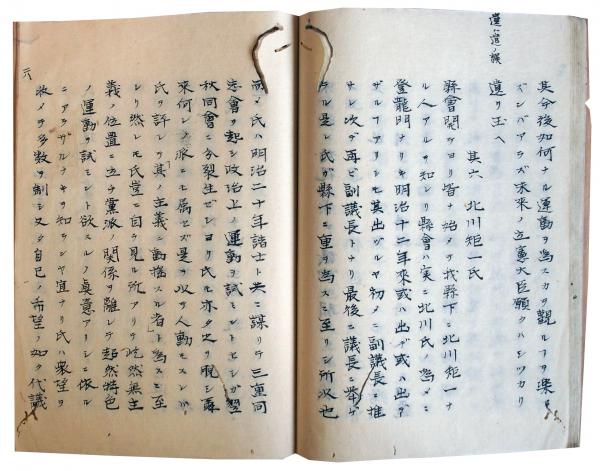 遺ハ遣ノ誤
其今後如何ナル運動ヲ為スカヲ観ルヲ楽
ズンバアラズ未来ノ立憲大臣願クハシツカリ
遺リ玉ヘ
其六 北川矩一氏
縣會開ケヨリ皆ナ始メテ我縣下ニ北川矩一ナ
ル人アルヲ知レリ縣會ハ実ニ北川氏ノ為メニ
登龍門ナリキ明治十二年来或ハ出デ或ハ出デ
ザルアリシモ其出ヅルヤ初メニ副議長ニ推
サレ次デ再ビ副議長トナリ最後ニ議長ニ挙ゲ
ラル是レ氏ガ縣下ニ重ヲ為スニ至リシ所以也
而メ氏ハ明治二十年諸士ト共ニ謀リテ三重同
志會ヲ起シ政治上ノ運動ヲ試ミントセシガ
秋同會ニ分裂生ゼシヨリ氏モ亦タ之ヲ脱シ
来何レノ派ニモ属セズ是ヲ以テ人動モスレバ
氏ヲ評シテ其ノ主義ニ動揺スル者ト為スニ至
レリ然レモ氏豈ニ自ラ見ル所アリテ斷然無主
義ノ位置ニ立チ黨派ノ関係ヲ離レテ超然特色
ノ運動ヲ試ミント欲スルノ真意アリシニ依ル
ニアラザルナキヲ知ランヤ宜ナリ氏ハ衆望ヲ
收メテ多数ヲ制シ又タ自己ノ希望ノ如ク代議
六